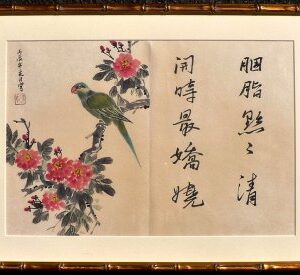 胭脂點〻清
開時最嬌嬈